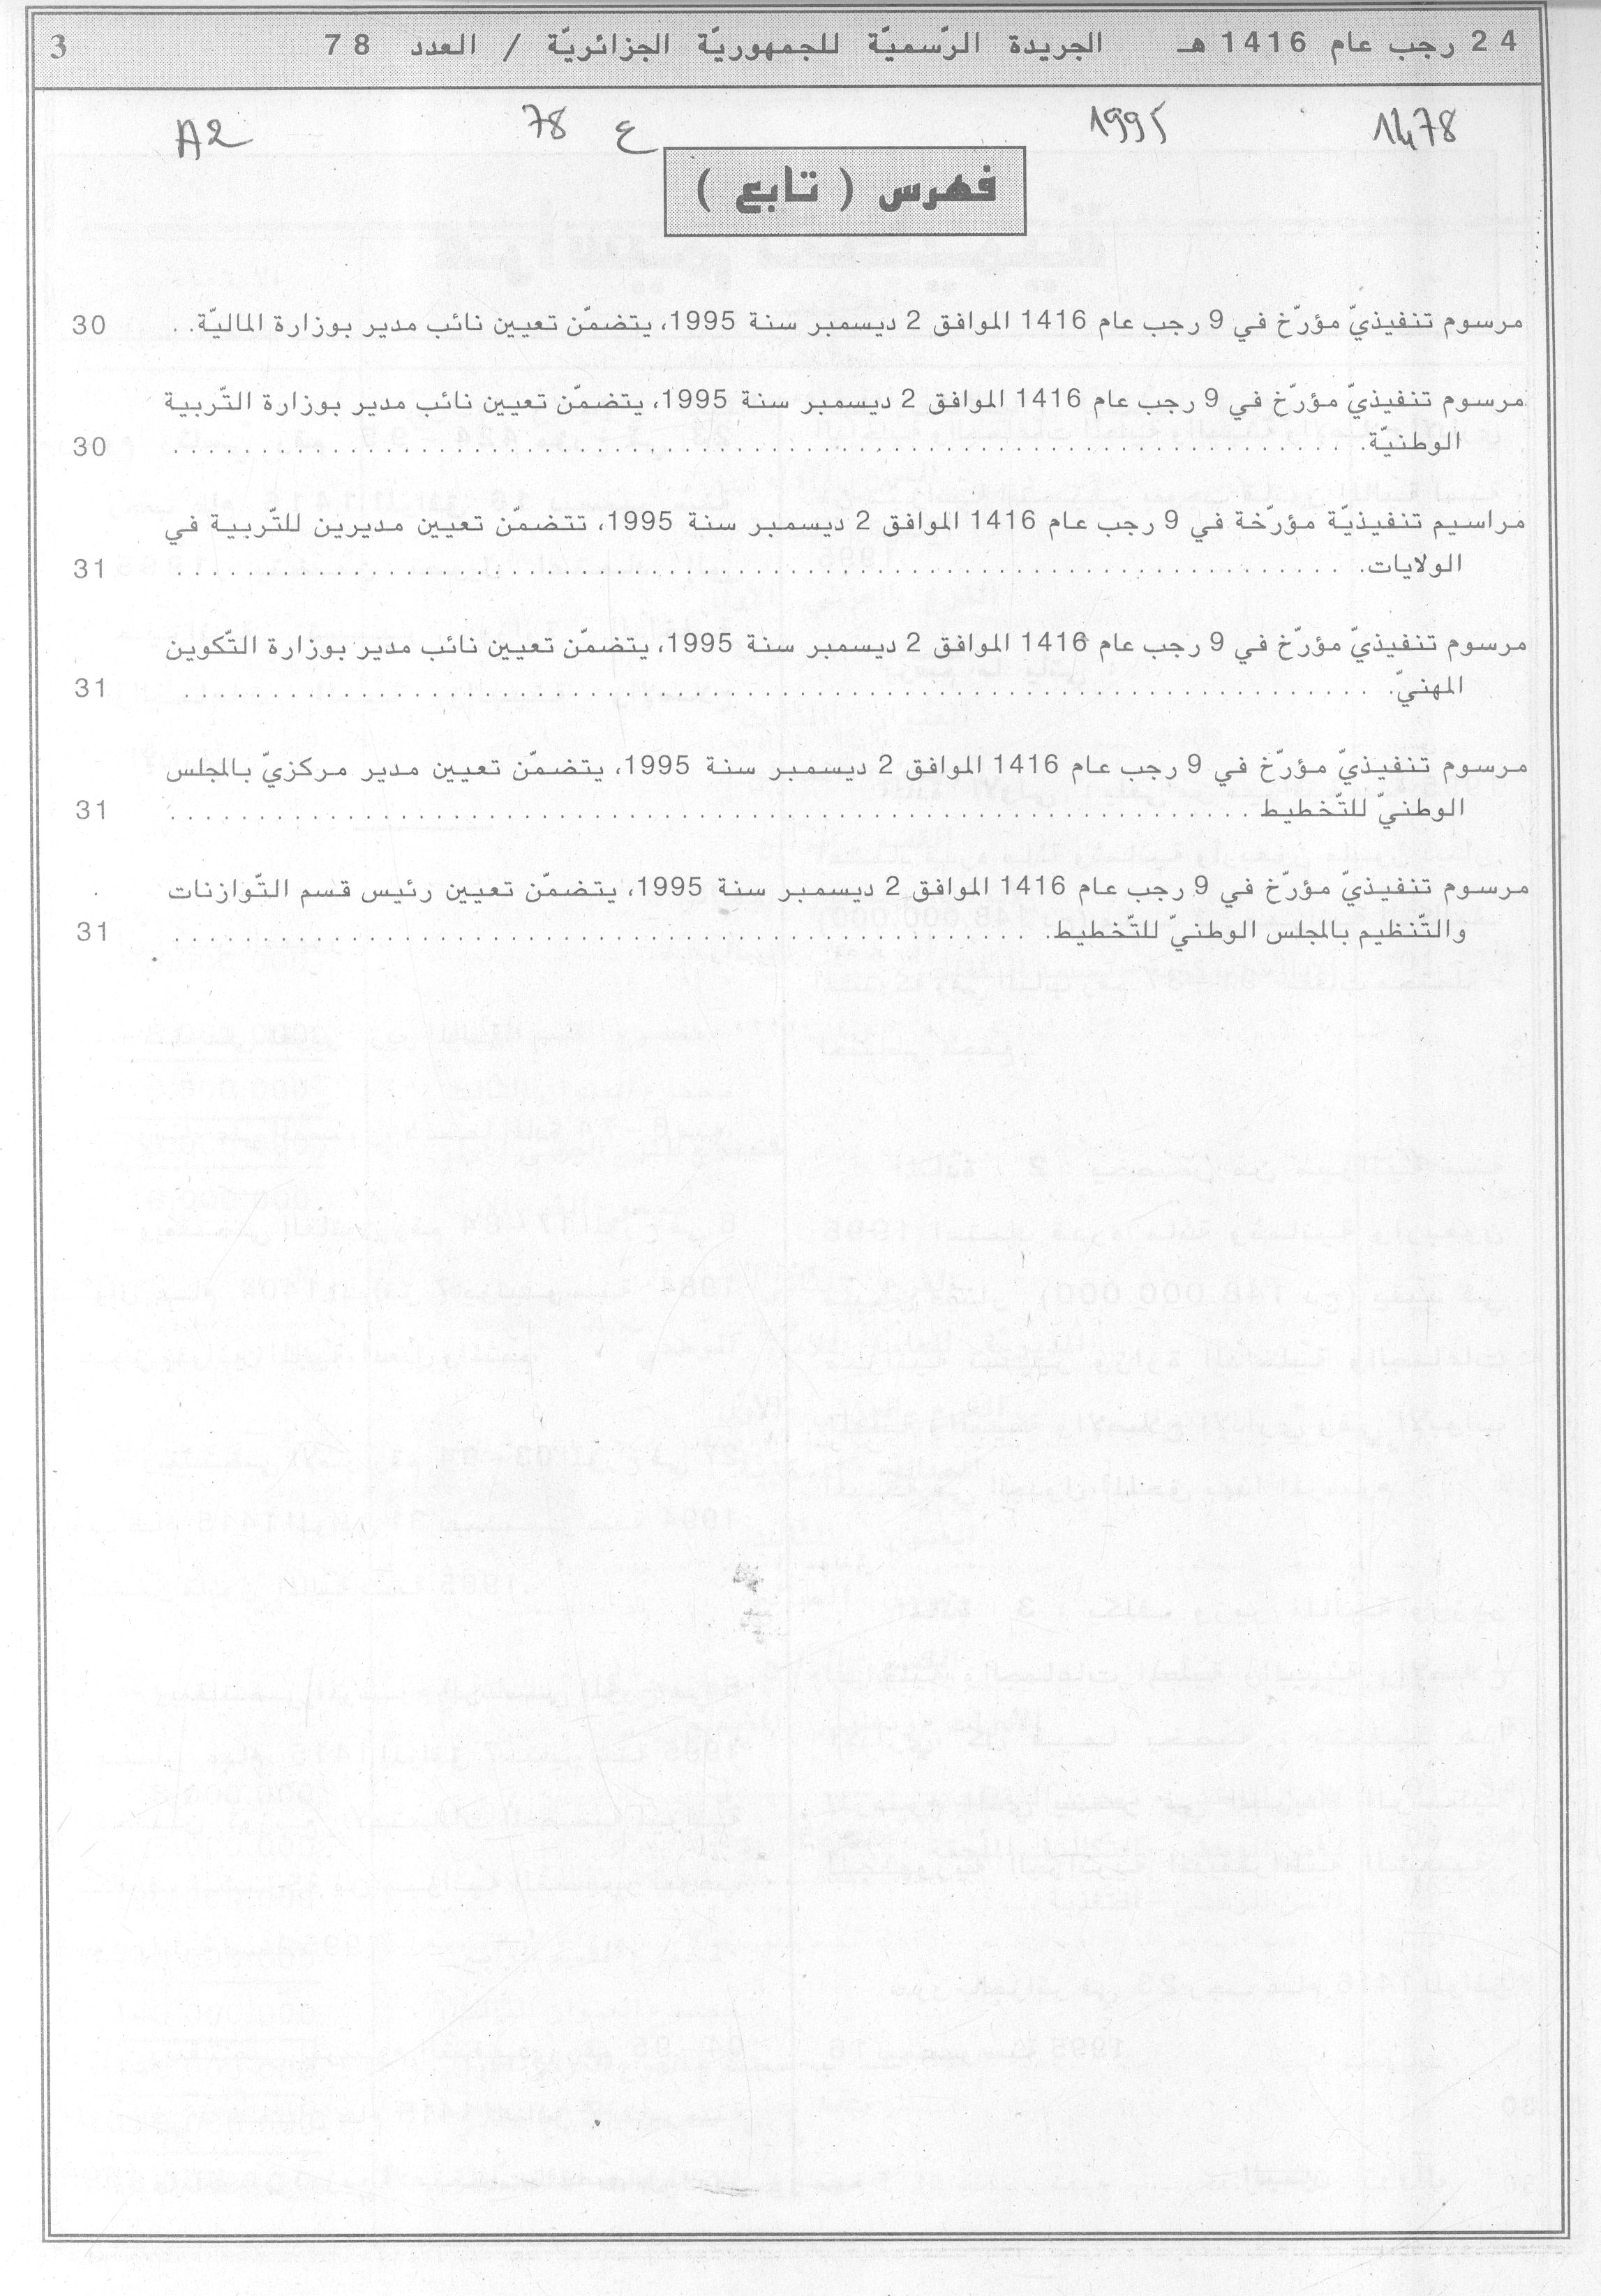 24 رجب عام 1416 هـ الجريدة الرّسميّة للجمهوريّة الجزائريّة / العدد 78 3
1478 1995 ع 78 A2
فهرس ( تابع )
مرسوم تنفيذيّ مؤرّخ في 9 رجب عام 1416 الموافق 2 ديسمبر سنة 1995، يتضمّن تعيين نائب مدير بوزارة الماليّة. . 30
مرسوم تنفيذيّ مؤرّخ في 9 رجب عام 1416 الموافق 2 ديسمبر سنة 1995، يتضمّن تعيين نائب مدير بوزارة التّربية
الوطنيّة. 30
مراسيم تنفيذيّة مؤرّخة في 9 رجب عام 1416 الموافق 2 ديسمبر سنة 1995، تتضمّن تعيين مديرين للتّربية في
الولايات. 31
مرسوم تنفيذيّ مؤرّخ في 9 رجب عام 1416 الموافق 2 ديسمبر سنة 1995، يتضمّن تعيين نائب مدير بوزارة التّكوين
المهنيّ. 31
مرسوم تنفيذيّ مؤرّخ في 9 رجب عام 1416 الموافق 2 ديسمبر سنة 1995، يتضمّن تعيين مدير مركزيّ بالمجلس
الوطنيّ للتّخطيط 31
مرسوم تنفيذيّ مؤرّخ في 9 رجب عام 1416 الموافق 2 ديسمبر سنة 1995، يتضمّن تعيين رئيس قسم التّوازنات
والتّنظيم بالمجلس الوطنيّ للتّخطيط. 31